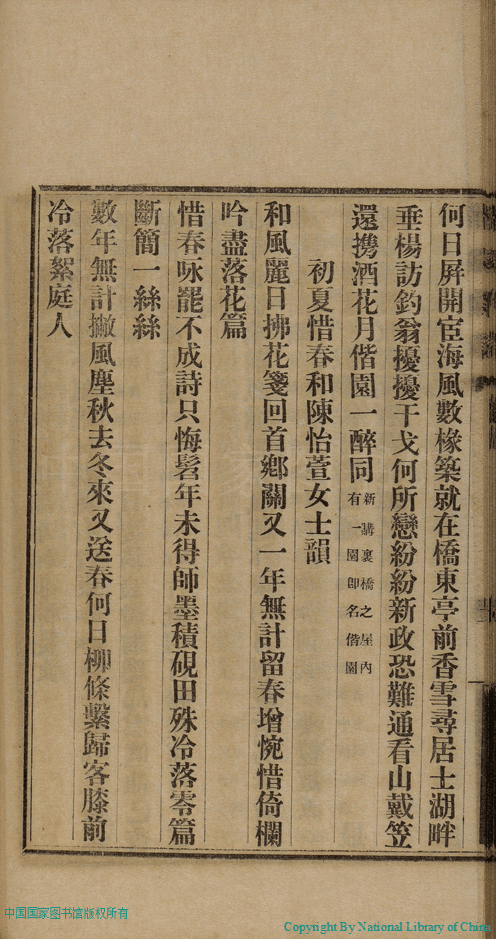 何日屏開宦海風數椽築就在橋東亭前香雪尋居士湖畔
垂楊訪釣翁擾擾干戈何所戀紛紛新政恐難通看山戴笠
還携酒花月偕園一醉同新購裏橋之屋內有一園即名偕園
初夏惜春和陳怡萱女士韻
和風麗日拂花箋回首鄉關又一年無計留春增惋惜倚欄
吟盡落花篇
惜春咏罷不成詩只悔髫年未得師墨積硯田殊冷落零篇
斷簡一絲絲
數年無計撇風塵秋去冬來又送春何日柳條繫歸客膝前
冷落絮庭人
中国国家图书馆版权所有
Copyright By National Library of China